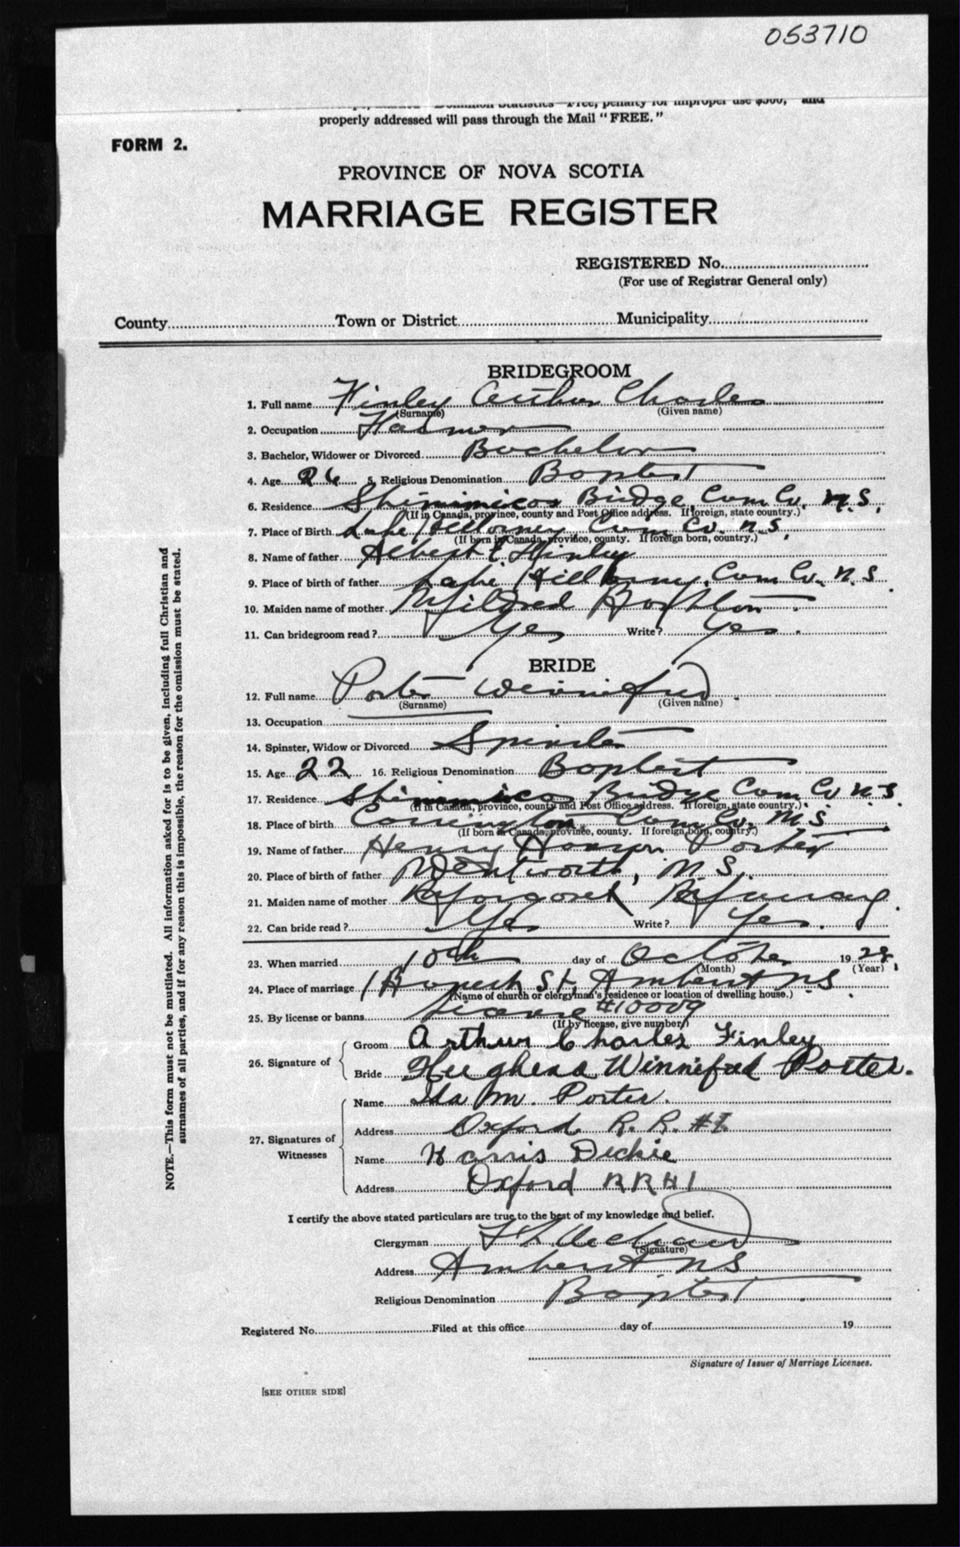 053710
properly addressed will pass through the Mail "FREE."
FORM 2.
PROVINCE OF NOVA SCOTIA
MARRIAGE REGISTER
REGISTERED No.
(For use of Registrar General only)
County Town or District Municipality
BRIDEGROOM
1. Full name Finley Arthur Charles
(Surname) (Given name)
2. Occupation Farmer
3. Bachelor, Widower or Divorced Bachelor
4. Age 26 5. Religious Denomination Baptist
6. Residence Shinimicas Bridge Cum. Co. N.S.
(If in Canada, province, county and Post Office address. If foreign, state country.)
7. Place of Birth Lake Killarney Cum Co. N.S.
(If born in Canada, province, county. If foreign born, country.)
8. Name of father Albert E Finley
9. Place of birth of father Lake Killarney, Cum Co. N.S
10. Maiden name of mother Mildred
11. Can bridegroom read? Yes Write? Yes.
BRIDE
12. Full name Porter Winnifred
(Surname) (Given name)
13. Occupation
14. Spinster, Widow or Divorced Spinster
15. Age 22 16. Religious Denomination Baptist
17. Residence Shinimicas Bridge Cum Co N.S.
(If in Canada, province, county and Post Office address. If foreign, state country.)
18. Place of birth Cum Co. N.S.
(If born in Canada, province, county. If foreign born, country.)
19. Name of father Henry Porter
20. Place of birth of father Wentworth, N.S.
21. Maiden name of mother Margaret
22. Can bride read? Yes Write? Yes.
23. When married 10th day of October 19 28
(Month) (Year)
24. Place of marriage St, Amherst NS.
(Name of church or clergyman's residence or location of dwelling house.)
25. By license or banns License #10009
(If by license, give number)
26. Signature of Groom Arthur Charles Finley
Bride Hughena Winnifred Porter.
27. Signatures of Witnesses
Name Ida M. Porter.
Address Oxford R.R. #1
Name Harris Dickie
Address Oxford RR #1
I certify the above stated particulars are true to the best of my knowledge and belief.
Clergyman
(Signature)
Address Amherst NS
Religious Denomination Baptist
Registered No. Filed at this office day of 19
Signature of Issuer of Marriage Licenses.
[SEE OTHER SIDE]
NOTE.—This form must not be mutilated. All information asked for is to be given, including full Christian and
surnames of all parties, and if for any reason this is impossible, the reason for the omission must be stated.